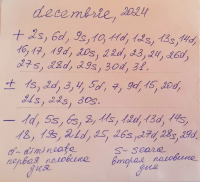 decembrie, 2024
+ 2s, 6d, 9s, 10, 11d, 12s, 13s, 14d,
16, 17, 19d, 20s, 22d, 23, 24, 26d,
27s, 28d, 29s, 30d, 31.
± 1s, 2d, 3, 4, 5d, 7, 9d, 15, 20d,
21s, 22s, 30s.
- 1d, 5s, 6s, 8, 11s, 12d, 13d, 14s,
18, 19s, 21d, 25, 26s, 27d, 28s, 29d.
d - dimineata
первая половина
дня
s - seara
вторая половина
дня